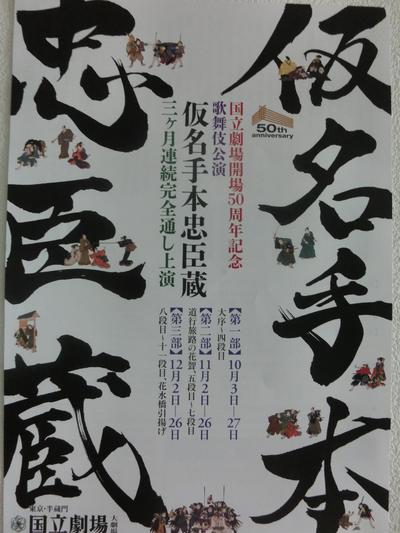 仮名手本
忠臣蔵
50th
anniversary
国立劇場開場50周年記念
歌舞伎公演
仮名手本忠臣蔵
三ヶ月連続完全通し上演
【第一部】10月3日─27日
大序〜四段目
【第二部】11月2日─26日
道行旅路の花聟、五段目〜七段目
【第三部】12月2日─26日
八段目〜十一段目、花水橋引揚げ
東京・半蔵門
国立劇場
大劇場